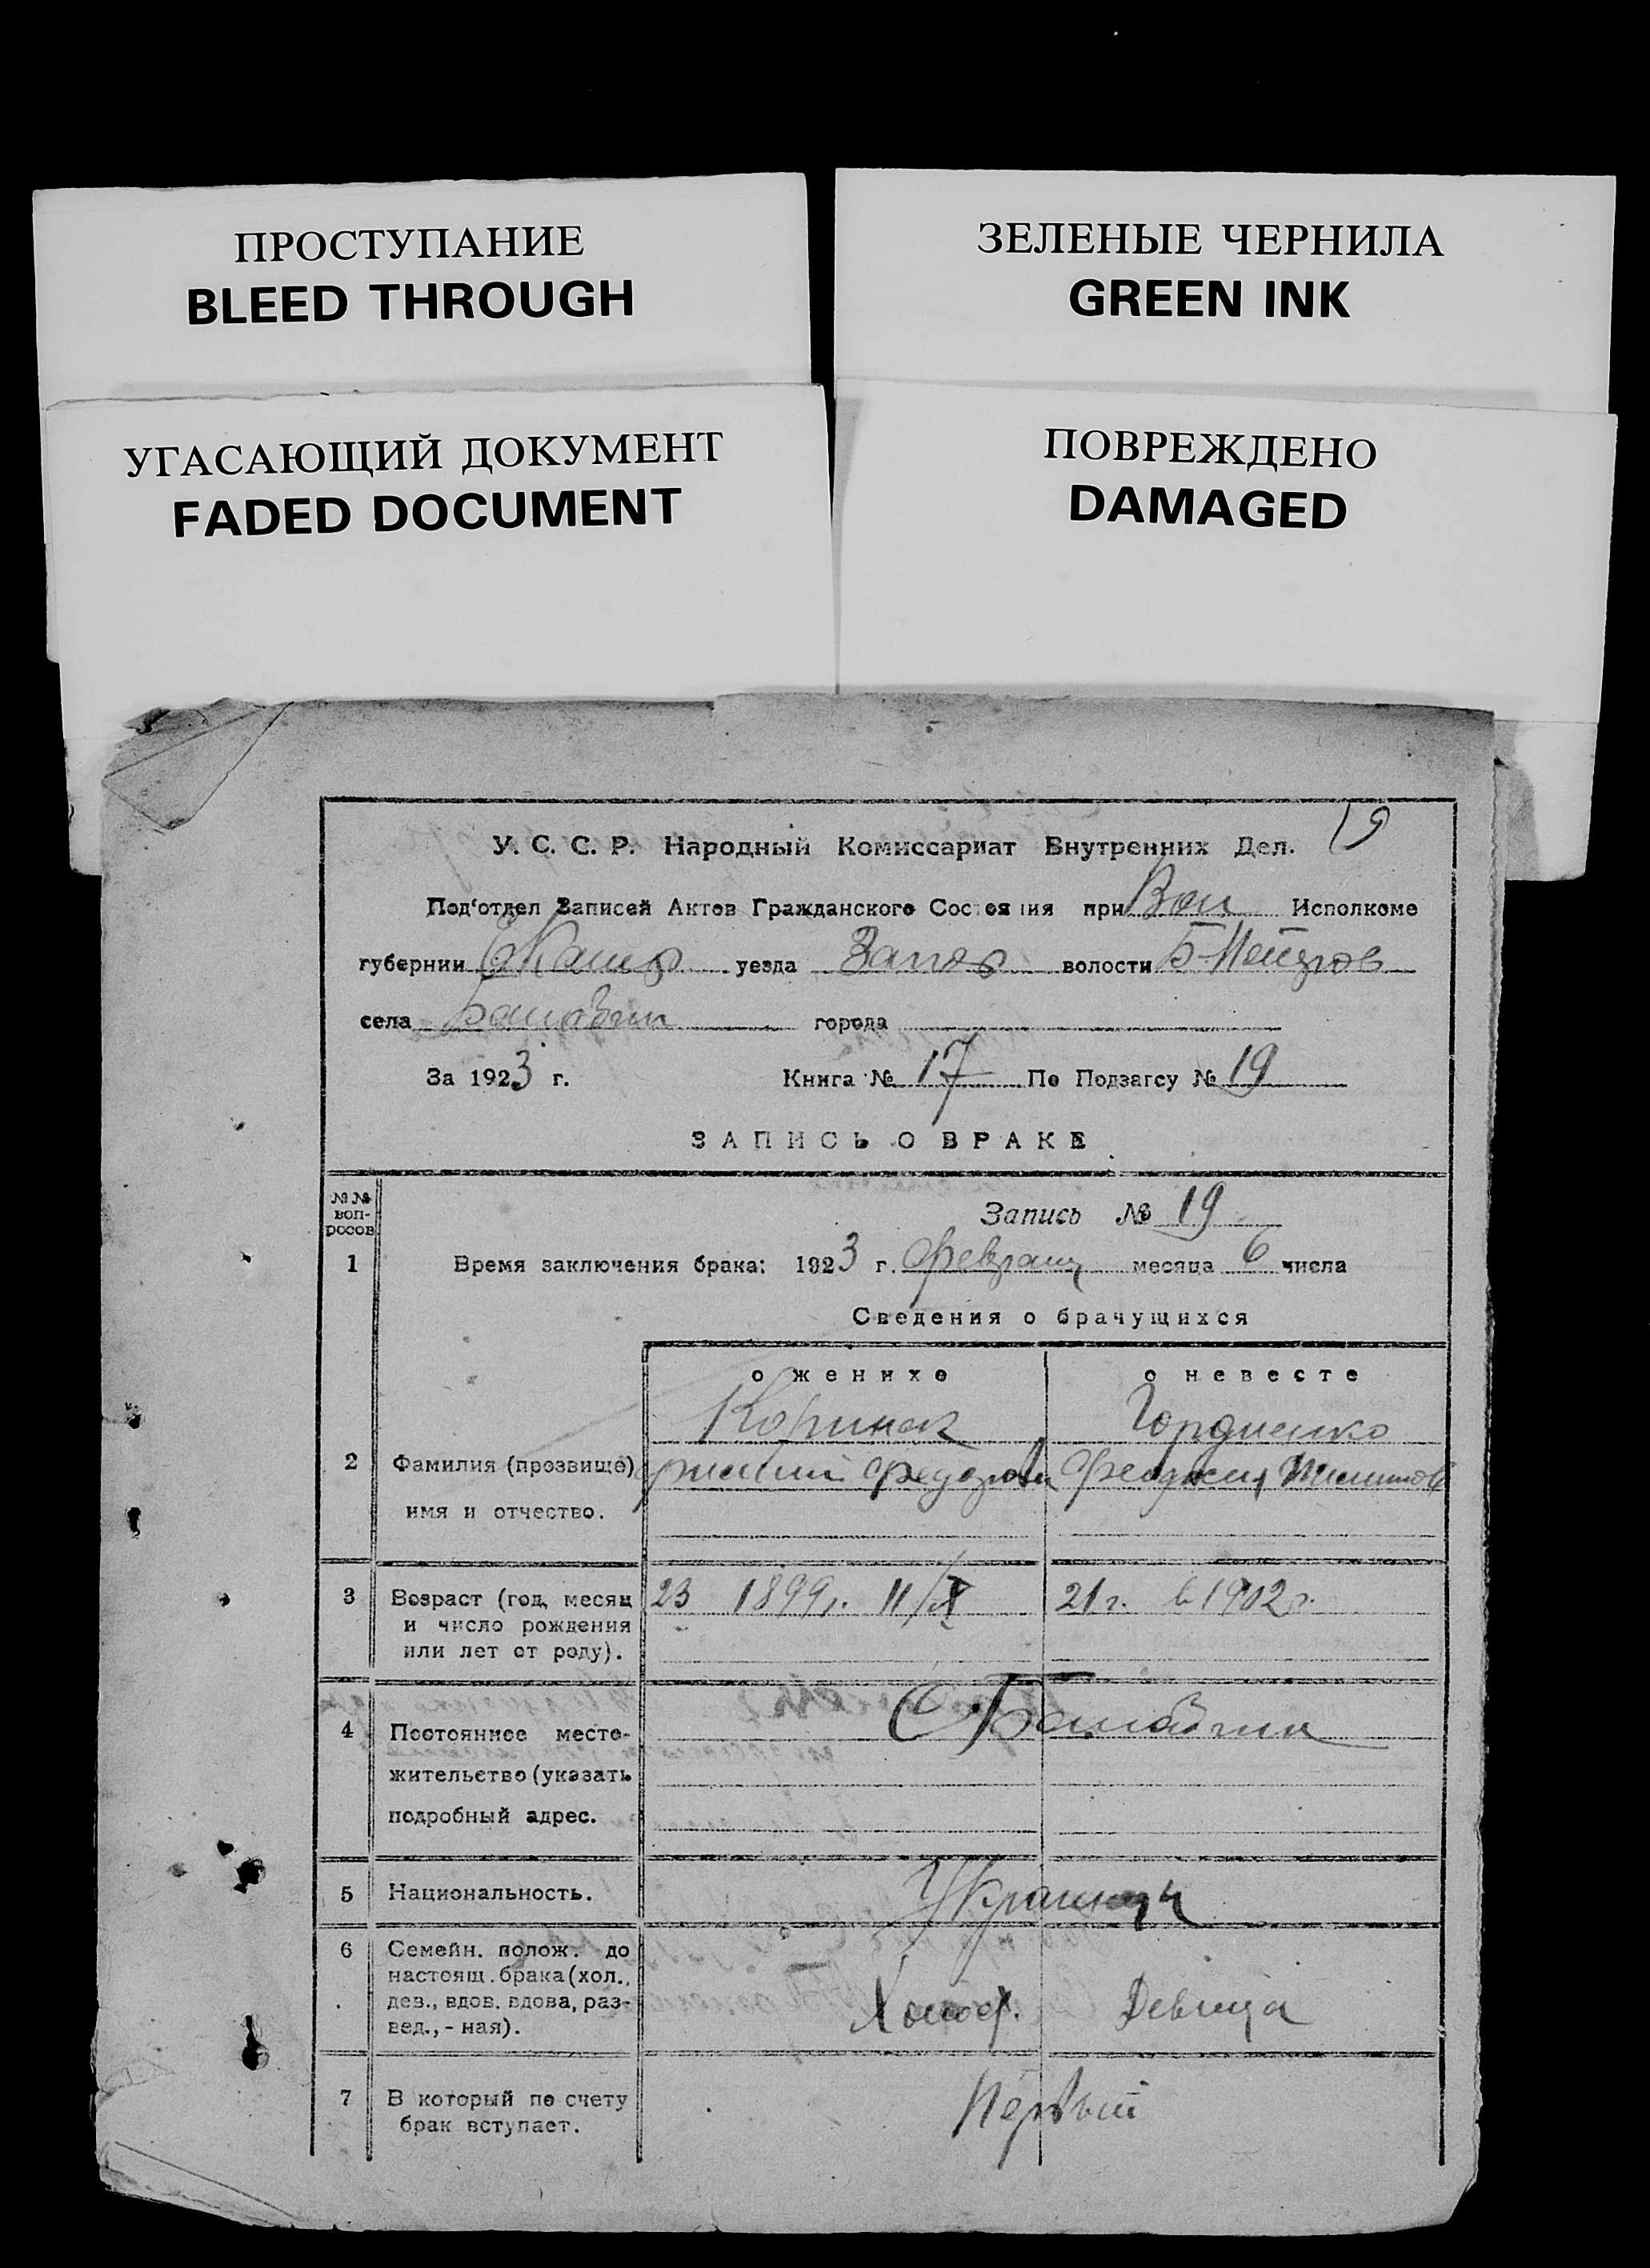 ПРОСТУПАНИЕ
BLEED THROUGH
ЗЕЛЕНЫЕ ЧЕРНИЛА
GREEN INK
УГАСАЮЩИЙ ДОКУМЕНТ
FADED DOCUMENT
ПОВРЕЖДЕНО
DAMAGED
19
У. С. С. Р. Народный Комиссариат Внутренних Дел.
Под'отдел Записей Актов Гражданского Состояния при Вол Исполкоме
губернии уезда Запор волости
села города
За 1923 г. Книга № 17 По Подзагсу № 19
ЗАПИСЬ О БРАКЕ
№№ воп-
росов
Запись № 19
1 Время заключения брака: 1923 г. февраля месяца 6 числа
Сведения о брачущихся
о женихе о невесте
Гордиенко
2 Фамилия (прозвище)
имя и отчество.
3 Возраст (год, месяц 23 1899 г. 21 г. в 1902 г.
и число рождения
или лет от роду).
4 Постоянное место-
жительство (указать
подробный адрес.
5 Национальность. Украинцы
6 Семейн. полож. до
настоящ. брака (хол.,
дев., вдов. вдова, раз- Холост. Девица
вед., - ная).
7 В который по счету Первый
брак вступает.